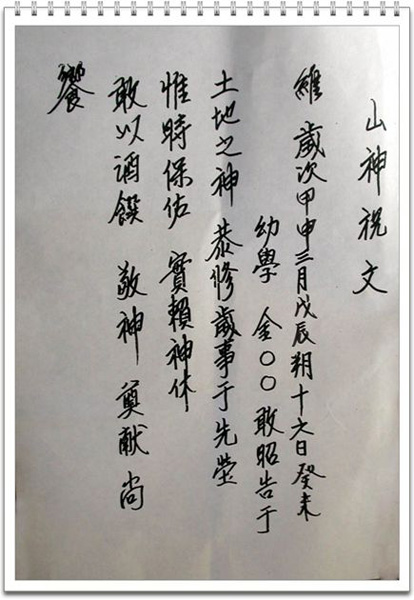 山神祝文
維 歲次甲申三月戊辰朔十六日癸未
幼學 金〇〇敢昭告于
土地之神 恭修歲事于先塋
惟時保佑 實賴神休
敢以酒饌 敬神奠献 尙
饗